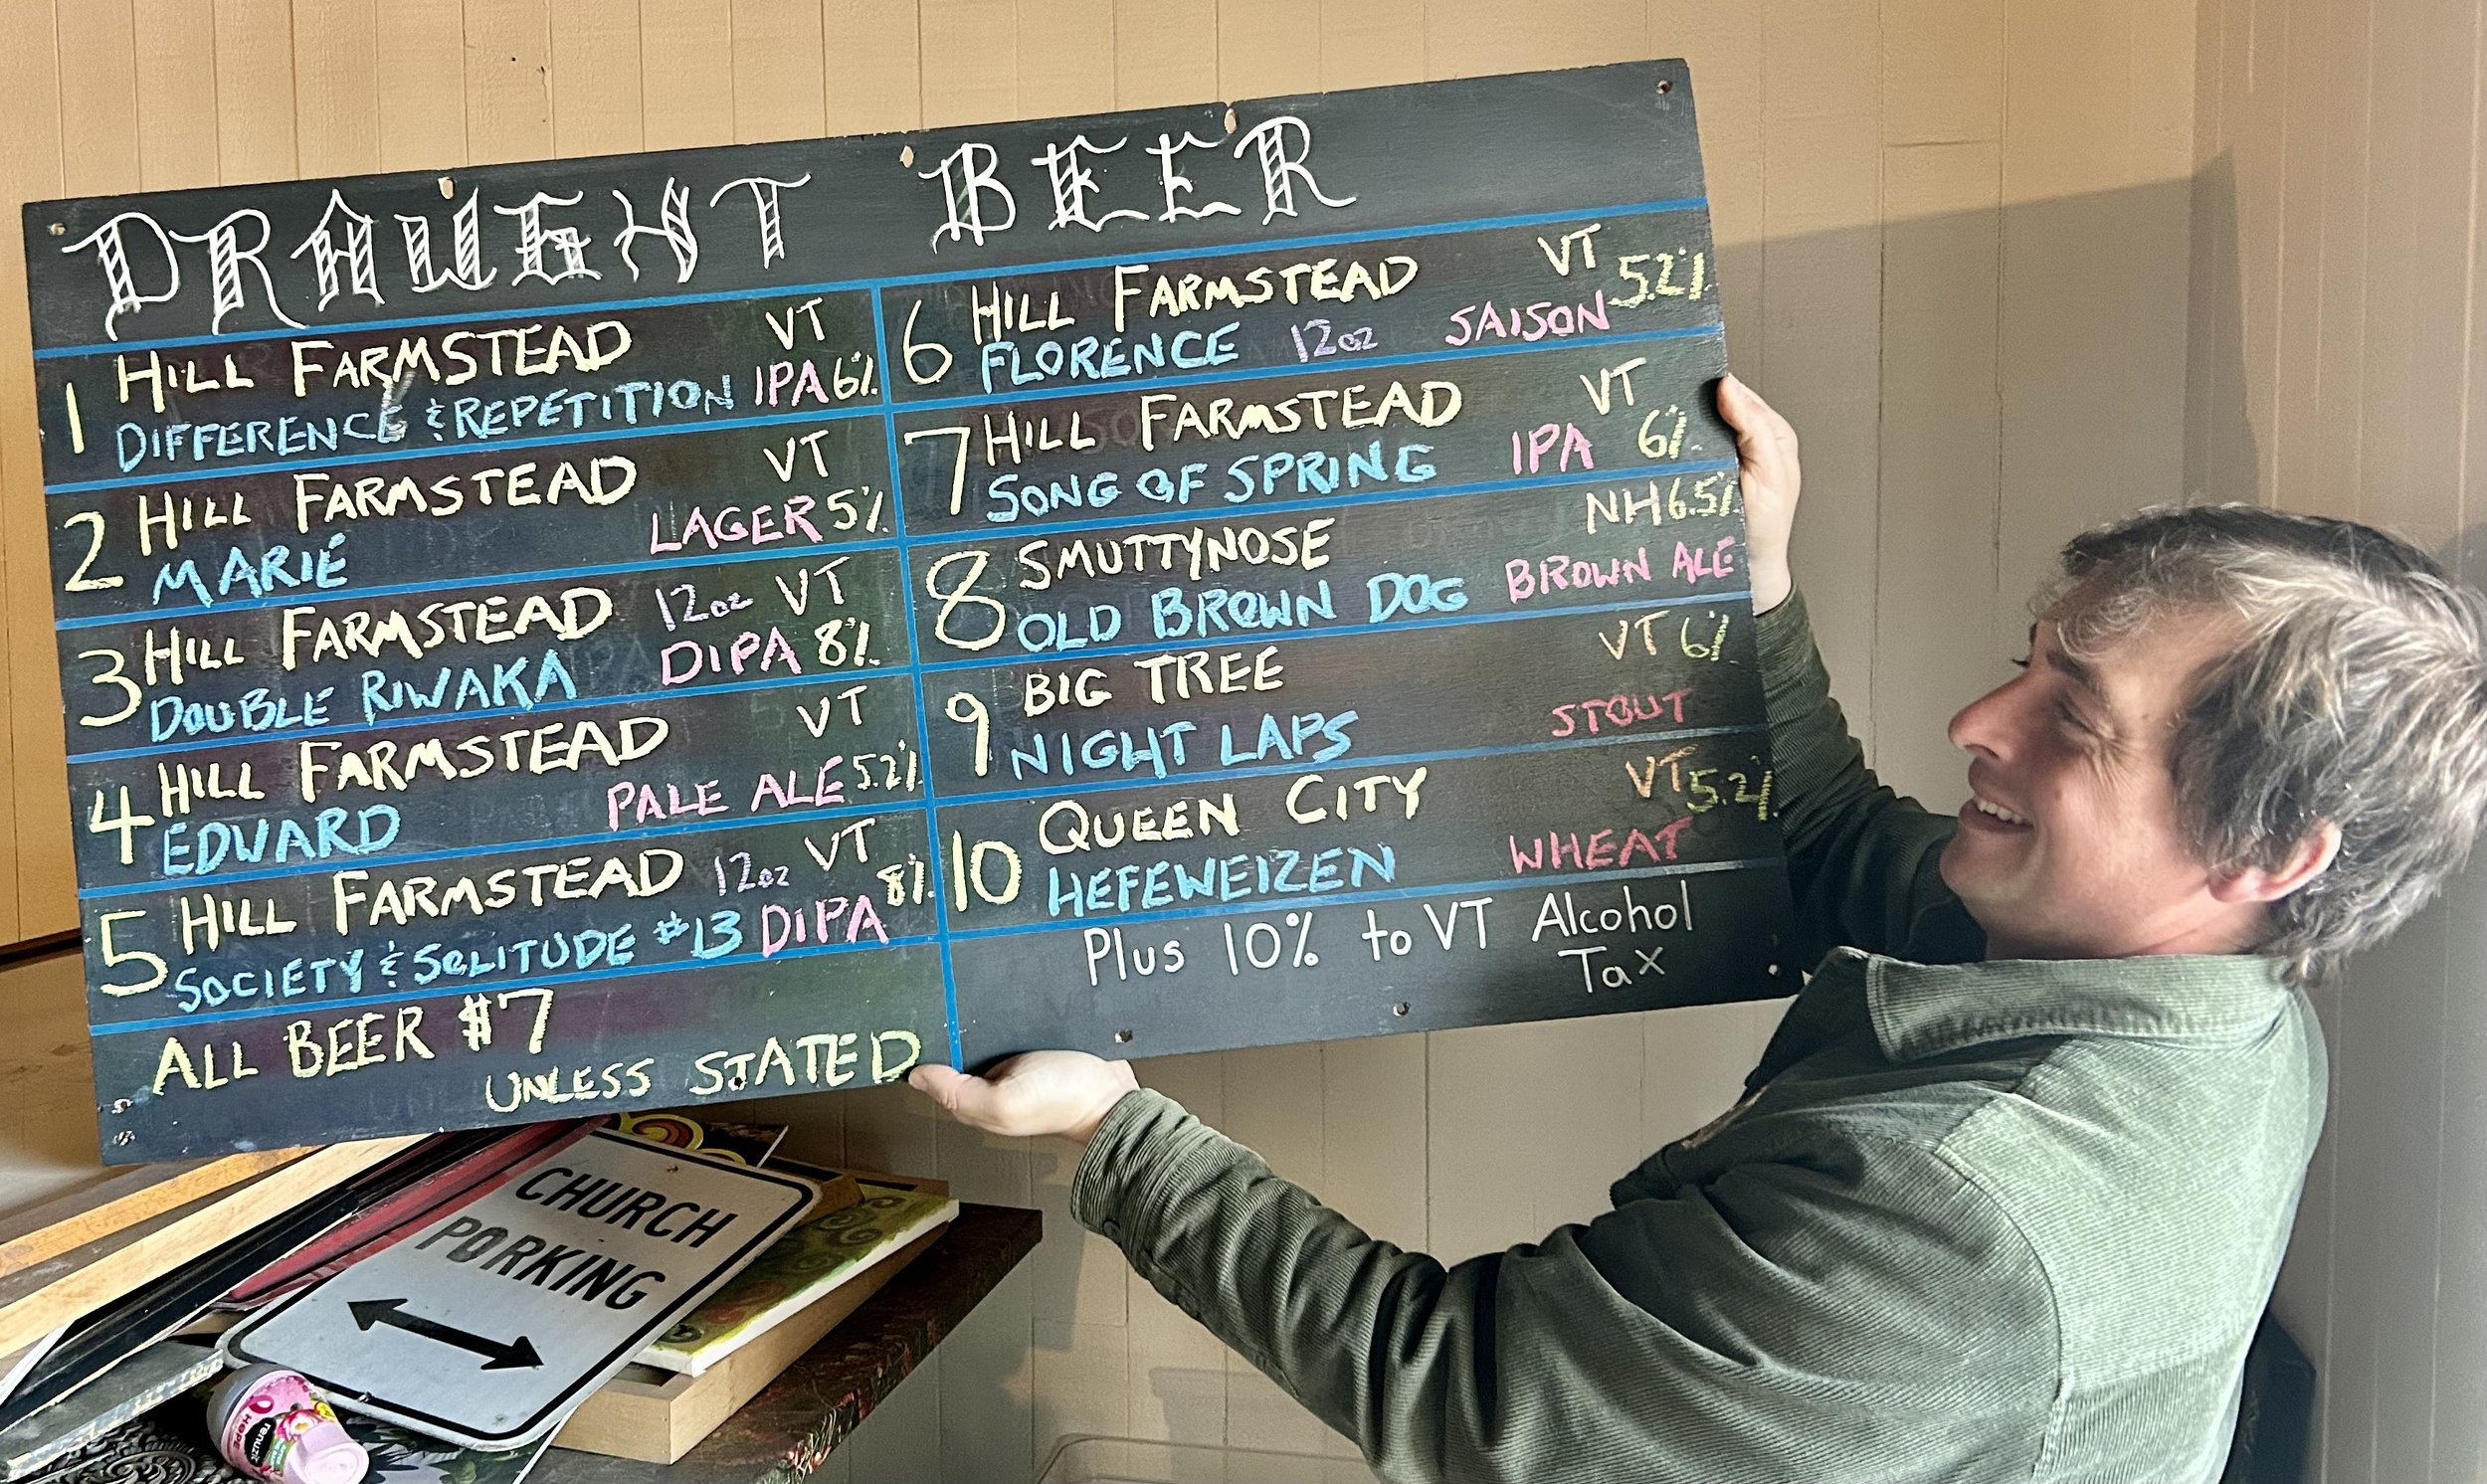 DRAUGHT BEER
1 HILL FARMSTEAD VT
DIFFERENCE & REPETITION IPA 6%
2 HILL FARMSTEAD VT
MARIÉ LAGER 5%
3 HILL FARMSTEAD 12oz VT
DOUBLE RIWAKA DIPA 8%
4 HILL FARMSTEAD VT
EDWARD PALE ALE 5.2%
5 HILL FARMSTEAD 12oz VT 8%
SOCIETY & SOLITUDE #13 DIPA
ALL BEER $7
UNLESS STATED
6 HILL FARMSTEAD VT 5.2%
FLORENCE 12oz SAISON
7 HILL FARMSTEAD VT
SONG OF SPRING IPA 6%
8 SMUTTYNOSE NH 6.5%
OLD BROWN DOG BROWN ALE
9 BIG TREE VT 6%
NIGHT LAPS STOUT
10 QUEEN CITY VT 5.2%
HEFEWEIZEN WHEAT
Plus 10% to VT Alcohol
Tax
CHURCH
PORKING
renuzit
HOPE